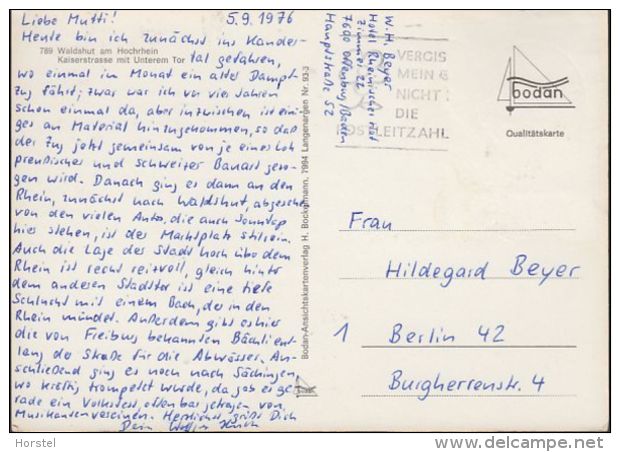 Liebe Mutti! 5.9.1976
Heute bin ich zunächst ins Kander-
789 Waldshut am Hochrhein
Kaiserstrasse mit Unterem Tor
tal gefahren,
wo einmal im Monat ein alter Dampf-
zug fährt; zwar war ich vor vier Jahren
schon einmal da, aber inzwischen ist eini-
ges an Material hinzugekommen, so daß
der Zug jetzt gemeinsam von je einer Lok
preußischer und schweizer Bauart gezo-
gen wird. Danach ging es dann an den
Rhein, zunächst nach Waldshut, abgesehen
von den vielen Autos, die auch Sonntag
hier stehen, ist der Marktplatz stilrein.
Auch die Lage der Stadt hoch über dem
Rhein ist recht reizvoll, gleich hinter
dem anderen Stadttor ist eine tiefe
Schlucht mit einem Bach, der in den
Rhein mündet. Außerdem gibt es hier
die von Freiburg bekannten Bächli ent-
lang der Straße für die Abwässer. An-
schließend ging es noch nach Säckingen,
wo kräftig trompetet wurde, da gab es ge-
rade ein Volksfest, offenbar getragen von
Musikantenvereinen. Herzlichst grüßt Dich
Dein
Bodan-Ansichtskartenverlag H. Bockelmann, 7994 Langenargen Nr. 93-3
W.H. Beyer
Hotel Rheinischer Hof
Zimmer 22
7600 Offenburg/Baden
Hauptstraße 52
VERGIS
MEIN
NICHT:
DIE
POSTLEITZAHL
bodan
Qualitätskarte
Frau
Hildegard Beyer
1 Berlin 42
Burgherrenstr. 4
Horstel
www.delcampe.net